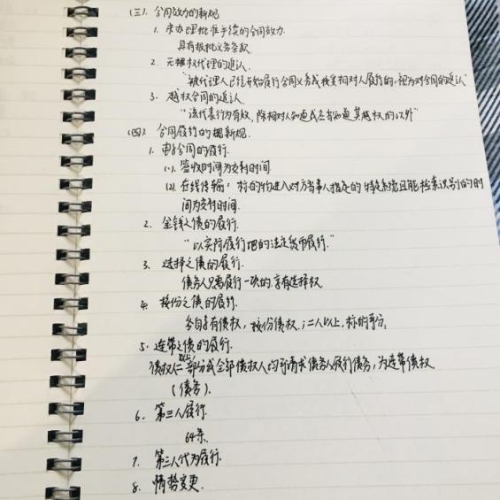 (三). 合同效力的新规
1. 未办理批准手续的合同效力
具有报批义务条款
2. 无权代理的追认
"被代理人已经开始履行合同义务或接受相对人履行的,视为对合同的追认"
3. 越权合同的追认
"该代表行为有效,除相对人知道或应当知道其越权的以外"
(四). 合同履行的新规.
1. 电子合同的履行.
(1). 签收时间为交付时间
(2). 在线传输: 标的物进入对方当事人指定的特定系统且能检索识别的时
间为交付时间.
2. 金钱之债的履行.
"以实际履行地的法定货币履行."
3. 选择之债的履行.
债务人只需履行一项的,享有选择权
4. 按份之债的履行.
各自享有债权,按份债权.:二人以上,标的可分,
5. 连带之债的履行.
债权人二以上,部分或全部债权人均可请求债务人履行债务,为连带债权
(债务).
6. 第三人履行.
7. 第三人代为履行.
8. 情势变更.